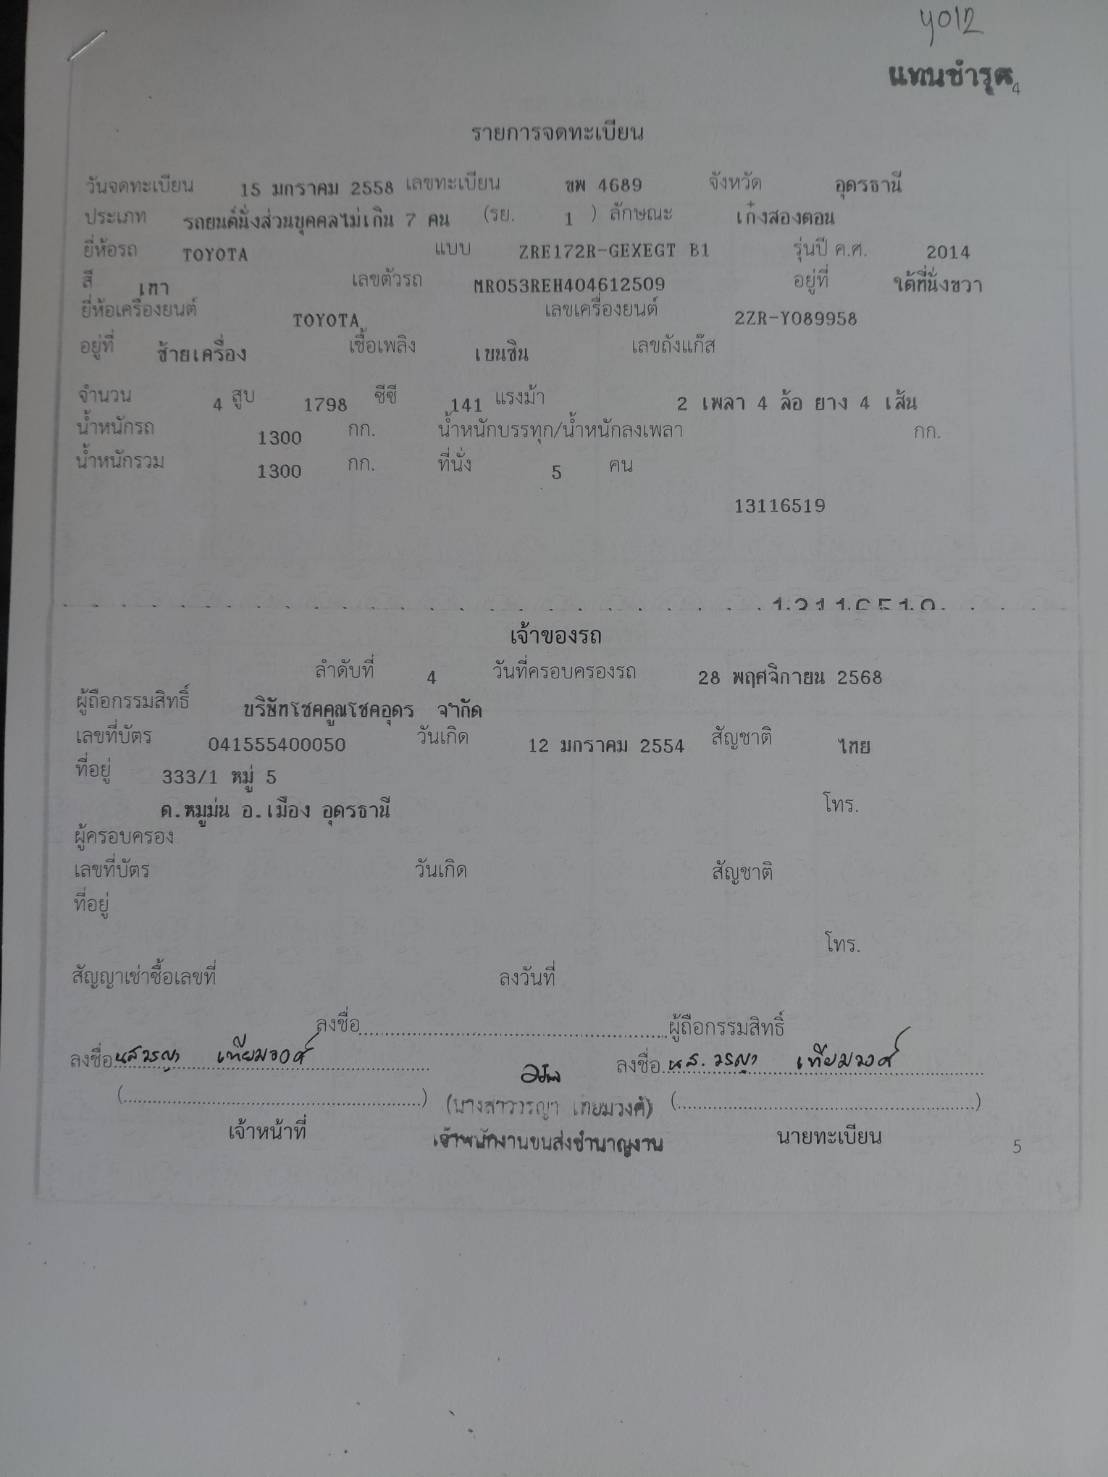 YO12
แทนชำรุด
4
รายการจดทะเบียน
วันจดทะเบียน 15 มกราคม 2558 เลขทะเบียน ขพ 4689 จังหวัด อุดรธานี
ประเภท รถยนต์นั่งส่วนบุคคลไม่เกิน 7 คน (รย. 1 ) ลักษณะ เก๋งสองตอน
ยี่ห้อรถ TOYOTA แบบ ZRE172R-GEXEGT B1 รุ่นปี ค.ศ. 2014
สี เทา เลขตัวรถ MR053REH404612509 อยู่ที่ ใต้ที่นั่งขวา
ยี่ห้อเครื่องยนต์ TOYOTA เลขเครื่องยนต์ 2ZR-Y089958
อยู่ที่ ซ้ายเครื่อง เชื้อเพลิง เบนซิน เลขถังแก๊ส
จำนวน 4 สูบ 1798 ซีซี 141 แรงม้า 2 เพลา 4 ล้อ ยาง 4 เส้น
น้ำหนักรถ 1300 กก. น้ำหนักบรรทุก/น้ำหนักลงเพลา กก.
น้ำหนักรวม 1300 กก. ที่นั่ง 5 คน
13116519
13116519
เจ้าของรถ
ลำดับที่ 4 วันที่ครอบครองรถ 28 พฤศจิกายน 2568
ผู้ถือกรรมสิทธิ์ บริษัทโชคคูณโชคอุดร จำกัด
เลขที่บัตร 041555400050 วันเกิด 12 มกราคม 2554 สัญชาติ ไทย
ที่อยู่ 333/1 หมู่ 5
ต.หมูม่น อ.เมือง อุดรธานี โทร.
ผู้ครอบครอง
เลขที่บัตร วันเกิด สัญชาติ
ที่อยู่
โทร.
สัญญาเช่าซื้อเลขที่ ลงวันที่
ลงชื่อ ผู้ถือกรรมสิทธิ์
ลงชื่อ นส วรญา เทียมวงศ์ ลงชื่อ น.ส. วรญา เทียมวงศ์
( ) (นางสาววรญา เทียมวงศ์) ( )
เจ้าหน้าที่ เจ้าพนักงานขนส่งชำนาญงาน นายทะเบียน
5